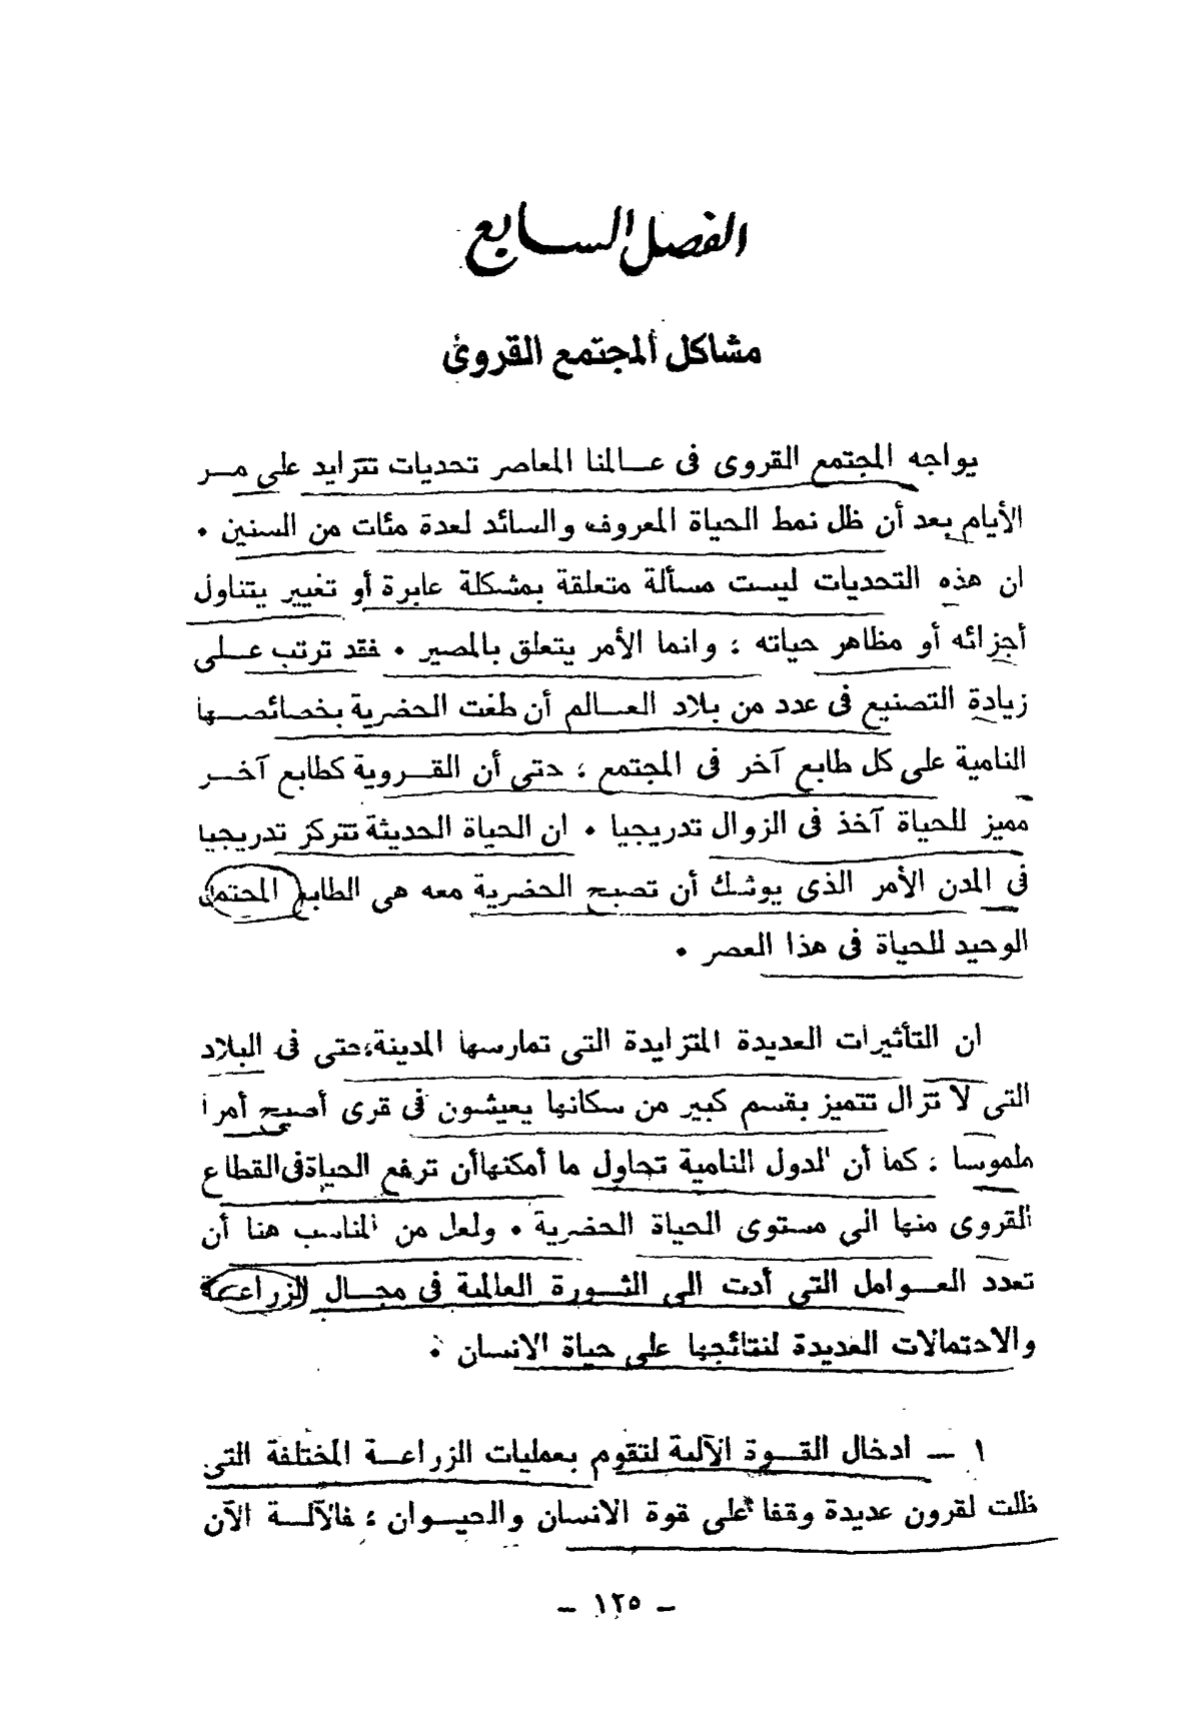 الفصل السابع
مشاكل المجتمع القروى
يواجه المجتمع القروى فى عالمنا المعاصر تحديات تتزايد على مر
الأيام بعد أن ظل نمط الحياة المعروف والسائد لعدة مئات من السنين .
ان هذه التحديات ليست مسألة متعلقة بمشكلة عابرة أو تغيير يتناول
أجزائه أو مظاهر حياته ؛ وانما الأمر يتعلق بالمصير . فقد ترتب على
زيادة التصنيع فى عدد من بلاد العالم أن طغت الحضرية بخصائصها
النامية على كل طابع آخر فى المجتمع ؛ حتى أن القروية كطابع آخر
مميز للحياة آخذ فى الزوال تدريجيا . ان الحياة الحديثة تتركز تدريجيا
فى المدن الأمر الذى يوشك أن تصبح الحضرية معه هى الطابع المحتمل
الوحيد للحياة فى هذا العصر .
ان التأثيرات العديدة المتزايدة التى تمارسها المدينة؛حتى فى البلاد
التى لا تزال تتميز بقسم كبير من سكانها يعيشون فى قرى أصبح أمرا
ملموسا ؛ كما أن الدول النامية تحاول ما أمكنها أن ترفع الحياة فى القطاع
القروى منها الى مستوى الحياة الحضرية . ولعل من المناسب هنا أن
تعدد العوامل التى أدت الى الثورة العالمية فى مجال الزراعة
والاحتمالات العديدة لنتائجها على حياة الانسان .
١ – ادخال القوة الآلية لتقوم بعمليات الزراعة المختلفة التى
ظلت لقرون عديدة وقفا على قوة الانسان والحيوان ؛ فالآلة الآن
– ١٢٥ –